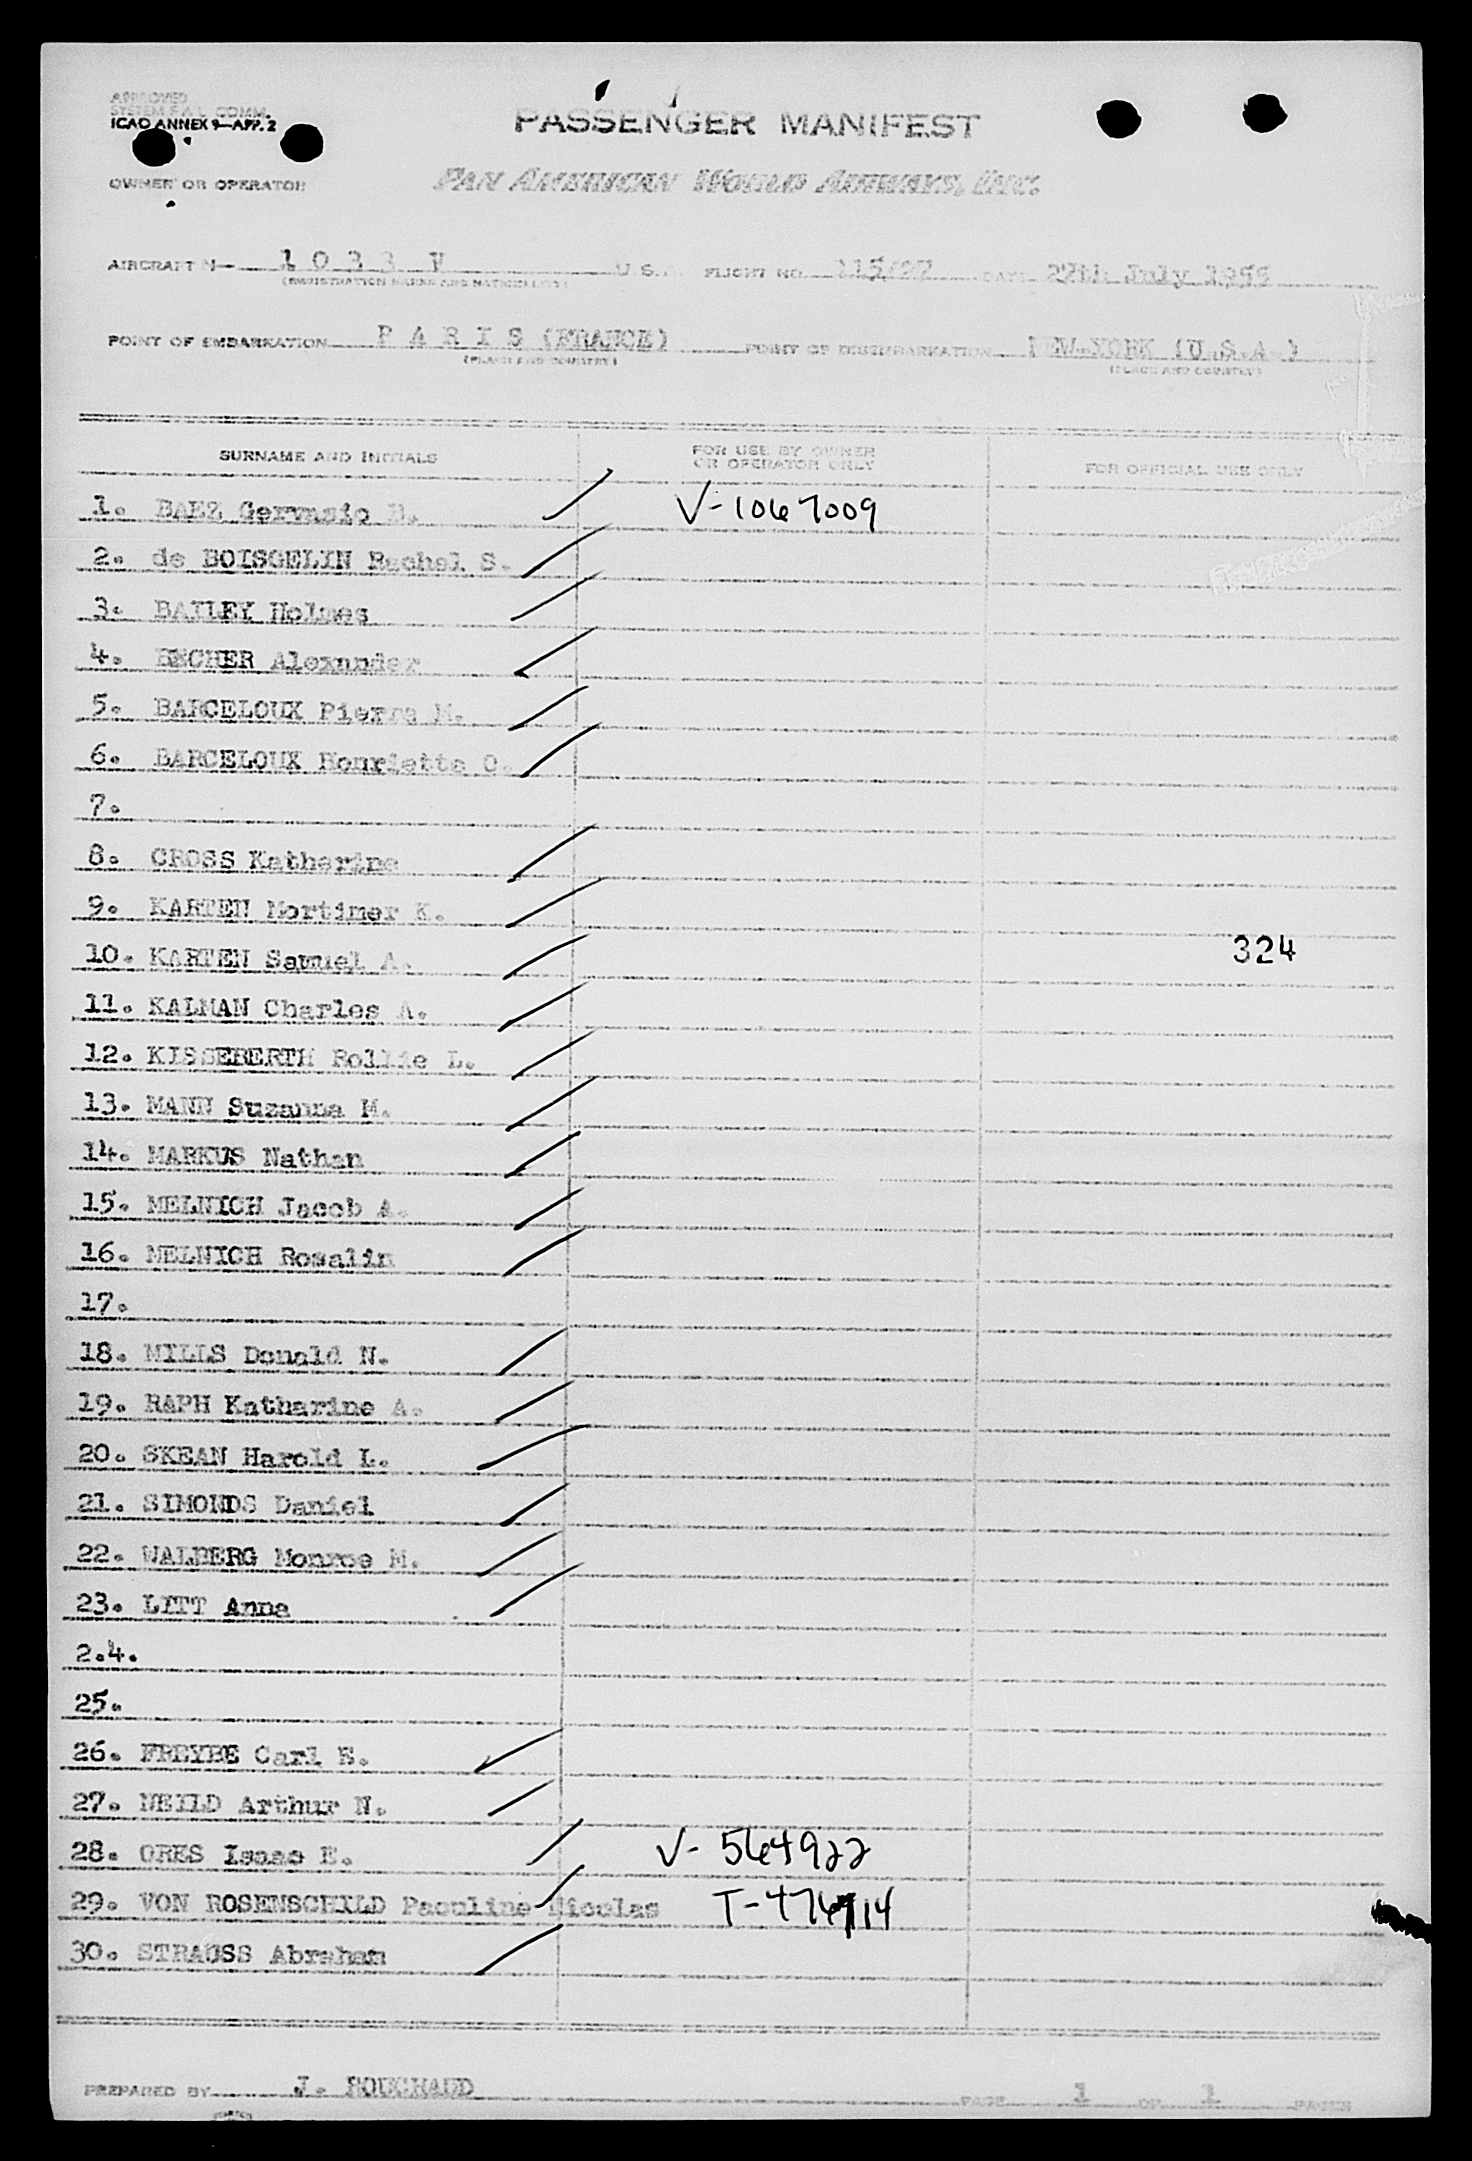 APPROVED
SYSTEM F.A.L. COMM.
ICAO ANNEX 9—APP. 2
PASSENGER MANIFEST
OWNER OR OPERATOR
PAN AMERICAN WORLD AIRWAYS, INC.
AIRCRAFT N— 1 0 3 3 V U.S. FLIGHT NO. 115/27 DATE 27th July 1955
(REGISTRATION MARKS AND NATIONALITY)
POINT OF EMBARKATION P A R I S (FRANCE) POINT OF DISEMBARKATION NEW-YORK (U.S.A.)
(PLACE AND COUNTRY) (PLACE AND COUNTRY)
SURNAME AND INITIALS FOR USE BY OWNER OR OPERATOR ONLY FOR OFFICIAL USE ONLY
1. BAEZ Gervasio B. V-1067009
2. de BOISGELIN Rachel S.
3. BAILEY Holmes
4. BECHER Alexander
5. BARCELOUX Pierre M.
6. BARCELOUX Henriette O.
7.
8. CROSS Katherine
9. KARTEN Mortimer K.
10. KARTEN Samuel A. 324
11. KALMAN Charles A.
12. KISSEBERTH Rollie L.
13. MANN Suzanna M.
14. MARKUS Nathan
15. MELNICH Jacob A.
16. MELNICH Rosalin
17.
18. MILLS Donald N.
19. RAPH Katharine A.
20. SKEAN Harold L.
21. SIMONDS Daniel
22. WALBERG Monroe M.
23. LITT Anna
2.4.
25.
26. FREYBE Carl E.
27. NEILD Arthur N.
28. ORES Isaac E. V- 564922
29. VON ROSENSCHILD Paculine Nicolas
30. STRAUSS Abraham
PREPARED BY J. BOUCHAUD PAGE 1 OF 1 PAGES